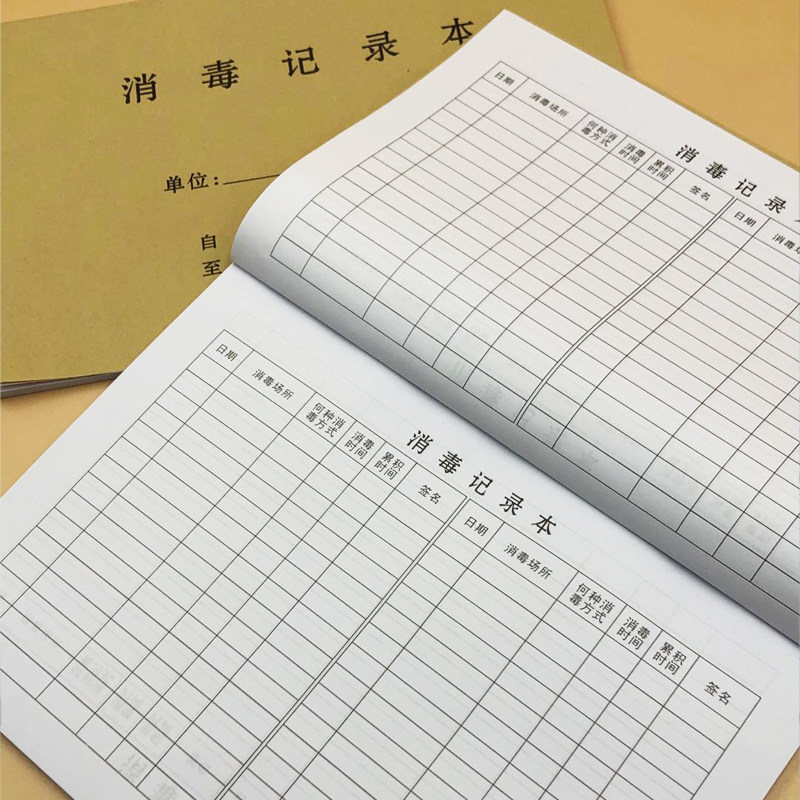 消毒记录本
单位：
自
至
消毒记录
日期
消毒场所
何种消
毒方式
消毒
时间
累积
时间
签名
日期
消毒场
消毒记录本
日期
消毒场所
何种消
毒方式
消毒
时间
累积
时间
签名
日期
消毒场所
何种消
毒方式
消毒
时间
累积
时间
签名